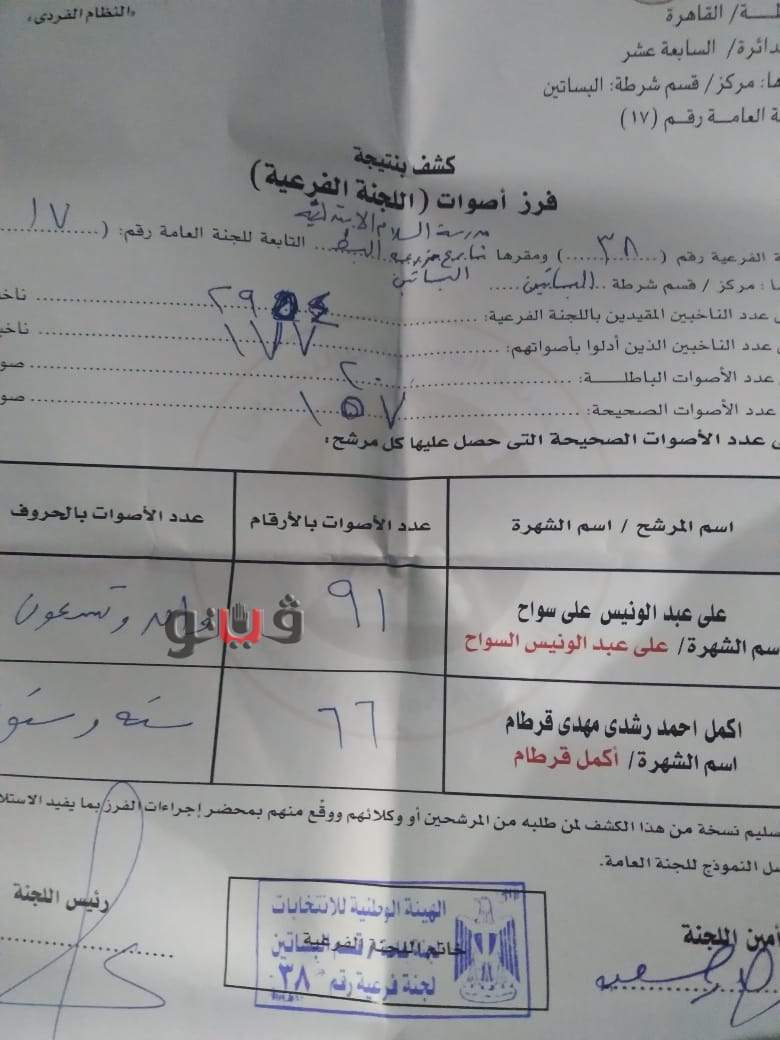 «النظام الفردى»
ـة/ القاهرة
دائرة/ السابعة عشر
ها: مركز/ قسم شرطة: البساتين
ة العامة رقم (١٧)
كشف بنتيجة
فرز أصوات (اللجنة الفرعية)
مدرسة السلام الابتدائية
ة الفرعية رقم (٣٨) ومقرها البط التابعة للجنة العامة رقم: (١٧
البساتين
ا: مركز / قسم شرطة البساتين
عدد الناخبين المقيدين باللجنة الفرعية: ناخ
عدد الناخبين الذين أدلوا بأصواتهم: ١٧٧ ناخ
عدد الأصوات الباطلة: ٢٠ صو
عدد الأصوات الصحيحة: ١٥٧ صو
عدد الأصوات الصحيحة التى حصل عليها كل مرشح:
اسم المرشح / اسم الشهرة عدد الأصوات بالأرقام عدد الأصوات بالحروف
على عبد الونيس على سواح ٩١ واحد وتسعون
سم الشهرة/ على عبد الونيس السواح
ڤيتو
اكمل احمد رشدى مهدى قرطام ٦٦ سته وستو
اسم الشهرة/ أكمل قرطام
سليم نسخة من هذا الكشف لمن طلبه من المرشحين أو وكلائهم ووقّع منهم بمحضر إجراءات الفرز بما يفيد الاستلا
ل النموذج للجنة العامة.
أمين اللجنة
خاتم اللجنة الفرعية
رئيس اللجنة
الهيئة الوطنية للانتخابات
قسم البساتين
لجنة فرعية رقم ٣٨